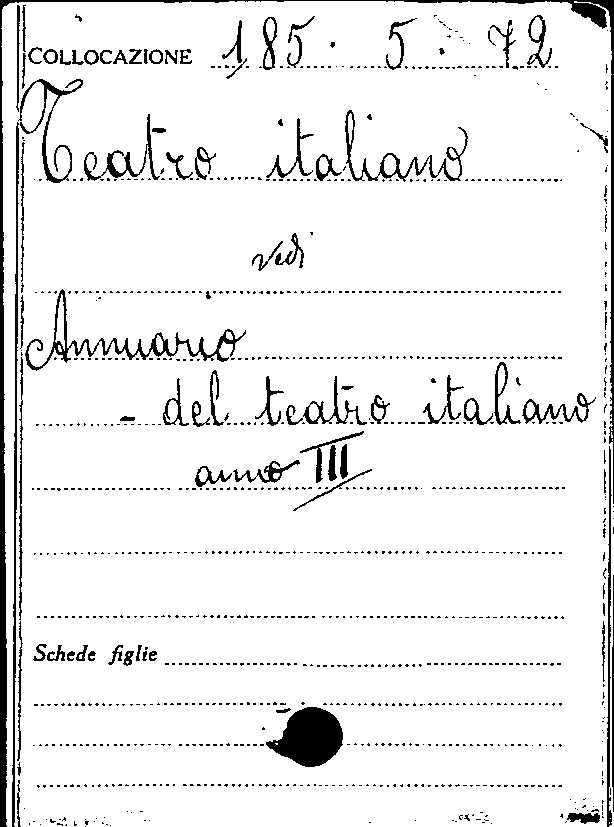 COLLOCAZIONE 185. 5. 72
Teatro italiano
vedi
Annuario
- del teatro italiano
anno III
Schede figlie